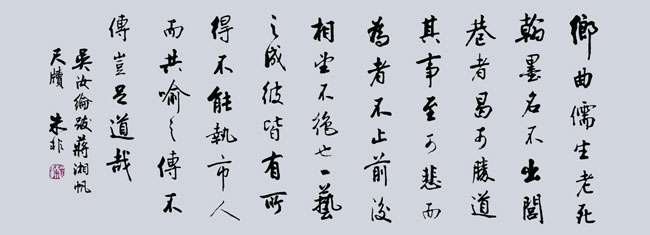 鄉曲儒生老死
翰墨名不出閭
巷者曷可勝道
其事至可悲而
為者不止前後
相望不絕也一藝
之成彼皆有所
得不能執市人
而共喻之傳不
傳豈足道哉
吳汝綸跋蔣湘帆
尺牘 朱非